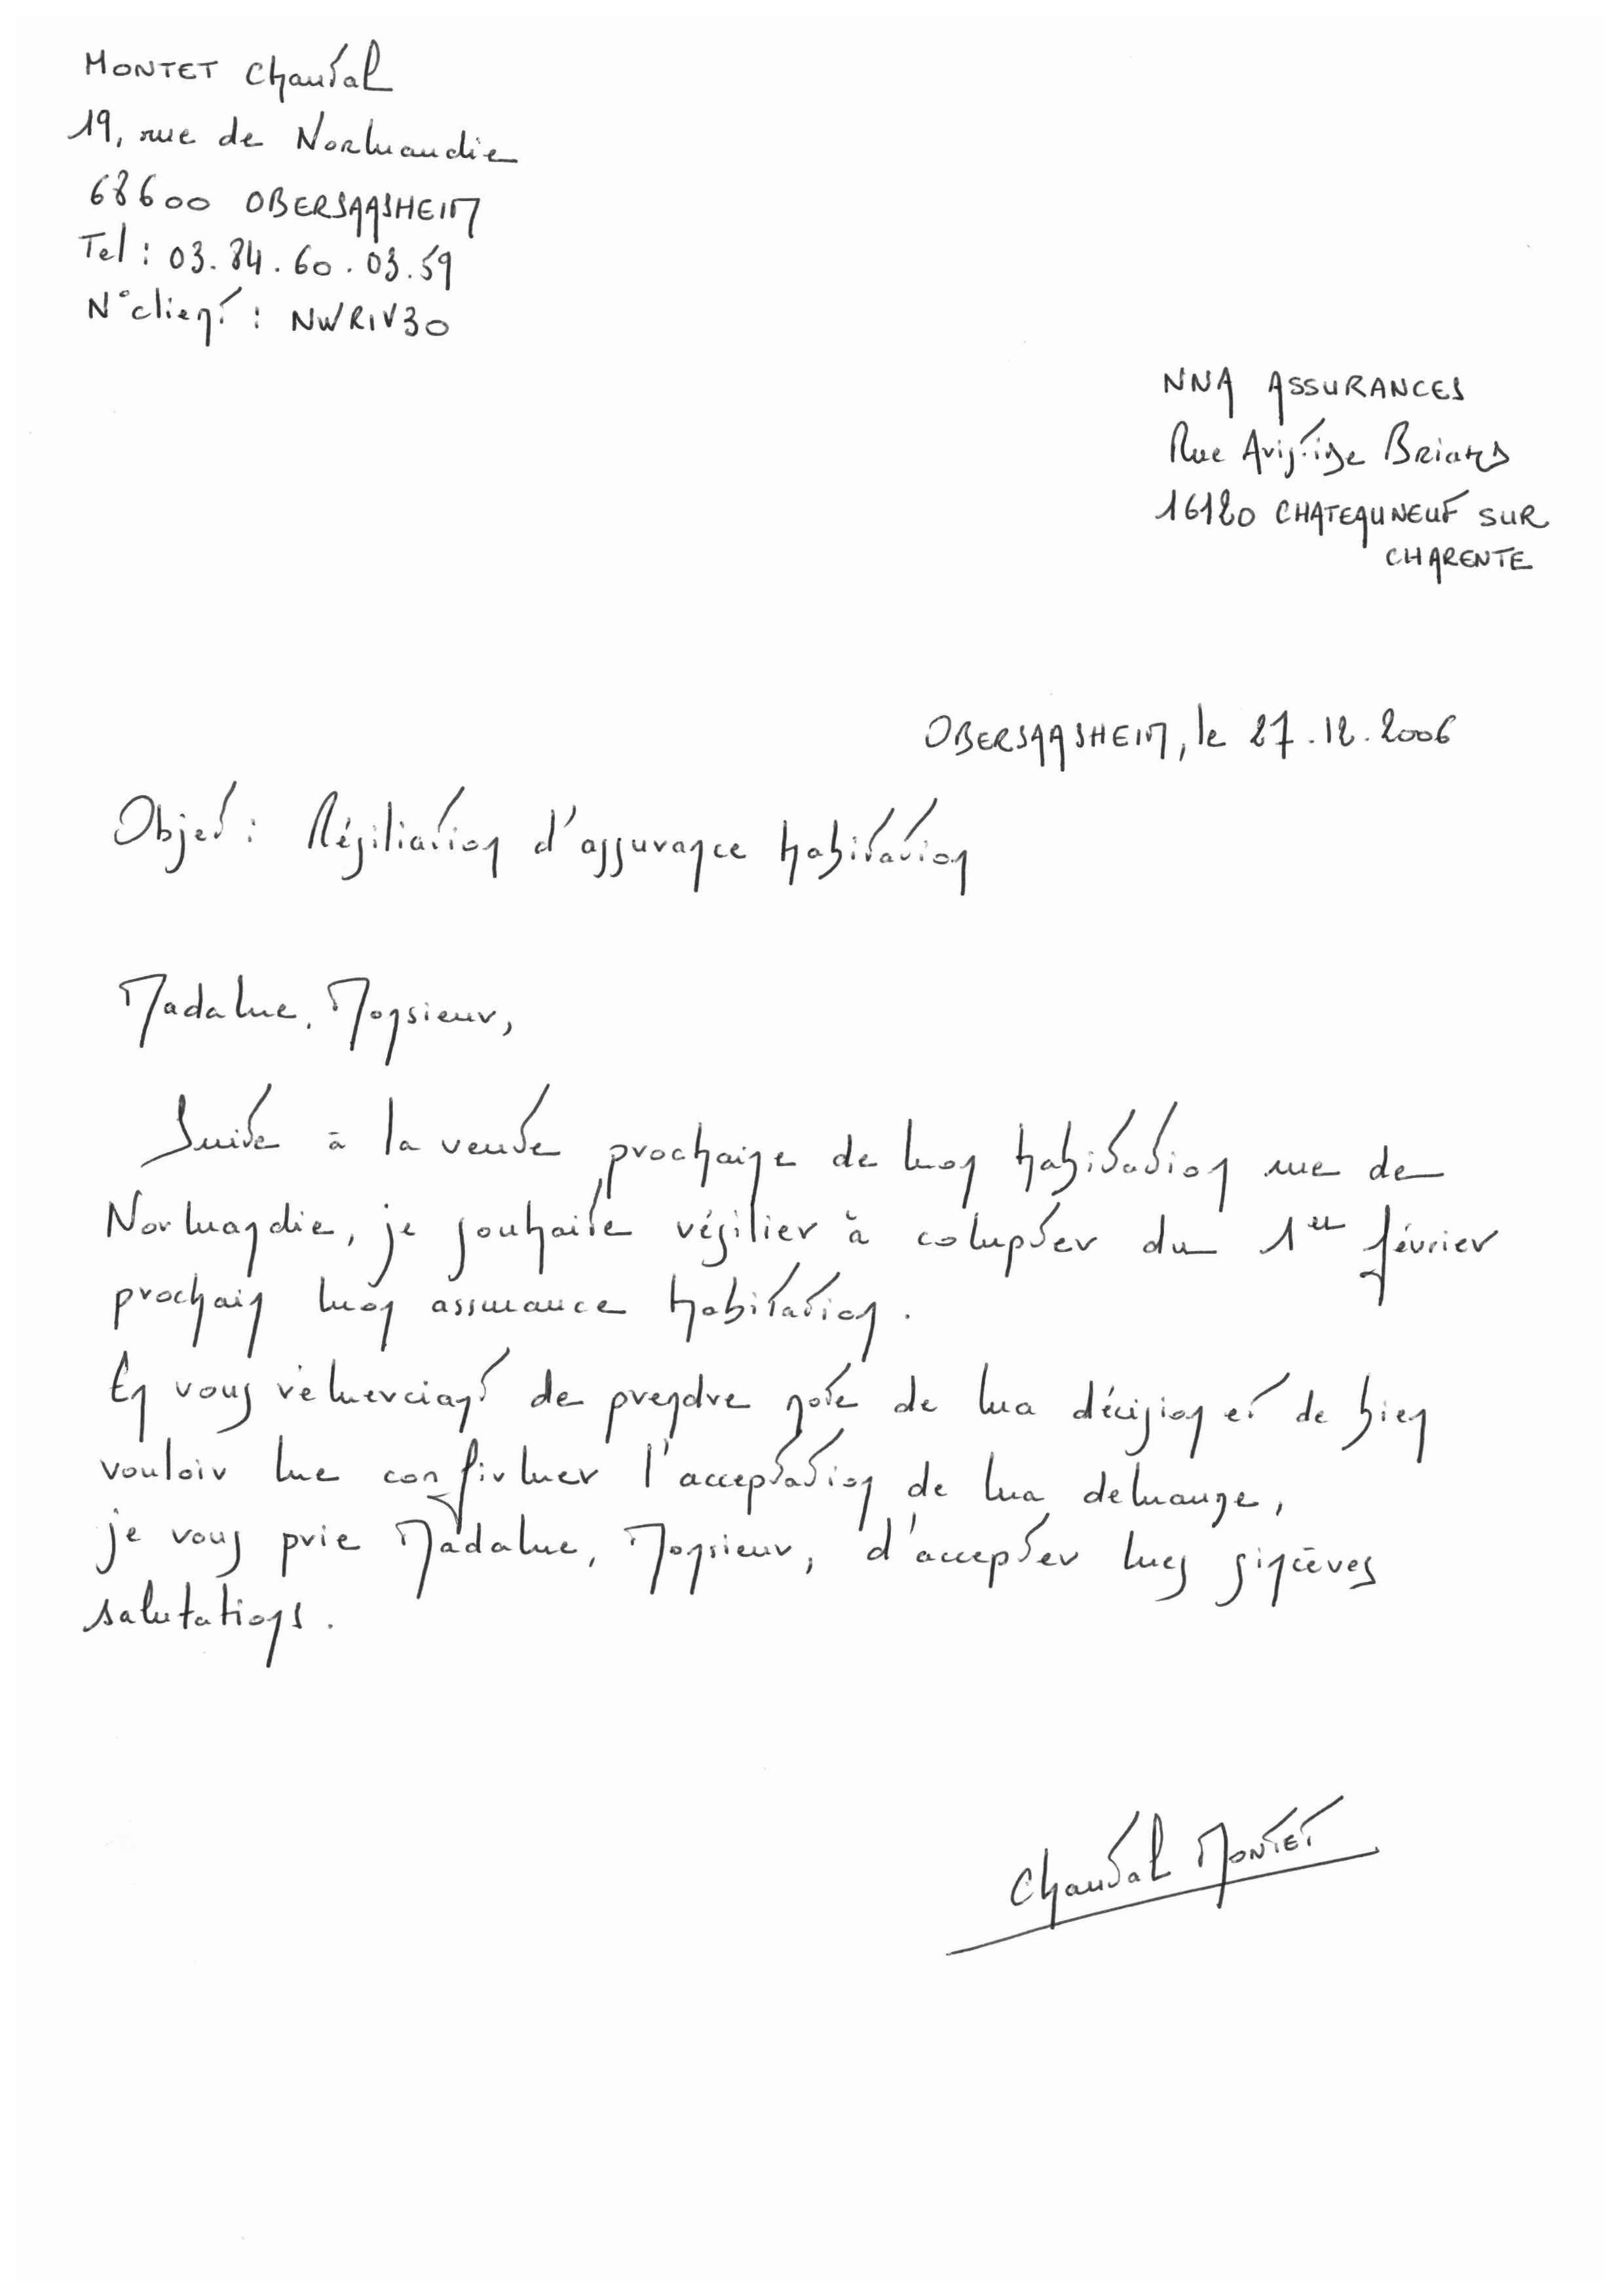 MONTET Chantal
19, rue de Normandie
68600 OBERSAASHEIM
Tel : 03.84.60.03.59
N° client : NWRIV30
NNA ASSURANCES
Rue Aristide Briand
16120 CHATEAUNEUF SUR
CHARENTE
OBERSAASHEIM, le 27.12.2006
Objet : Résiliation d'assurance habitation
Madame, Monsieur,
Suite à la vente prochaine de mon habitation rue de
Normandie, je souhaite résilier à compter du 1er février
prochain mon assurance habitation.
En vous remerciant de prendre note de ma décision et de bien
vouloir me confirmer l'acceptation de ma demande,
je vous prie Madame, Monsieur, d'accepter mes sincères
salutations.
Chantal MONTET